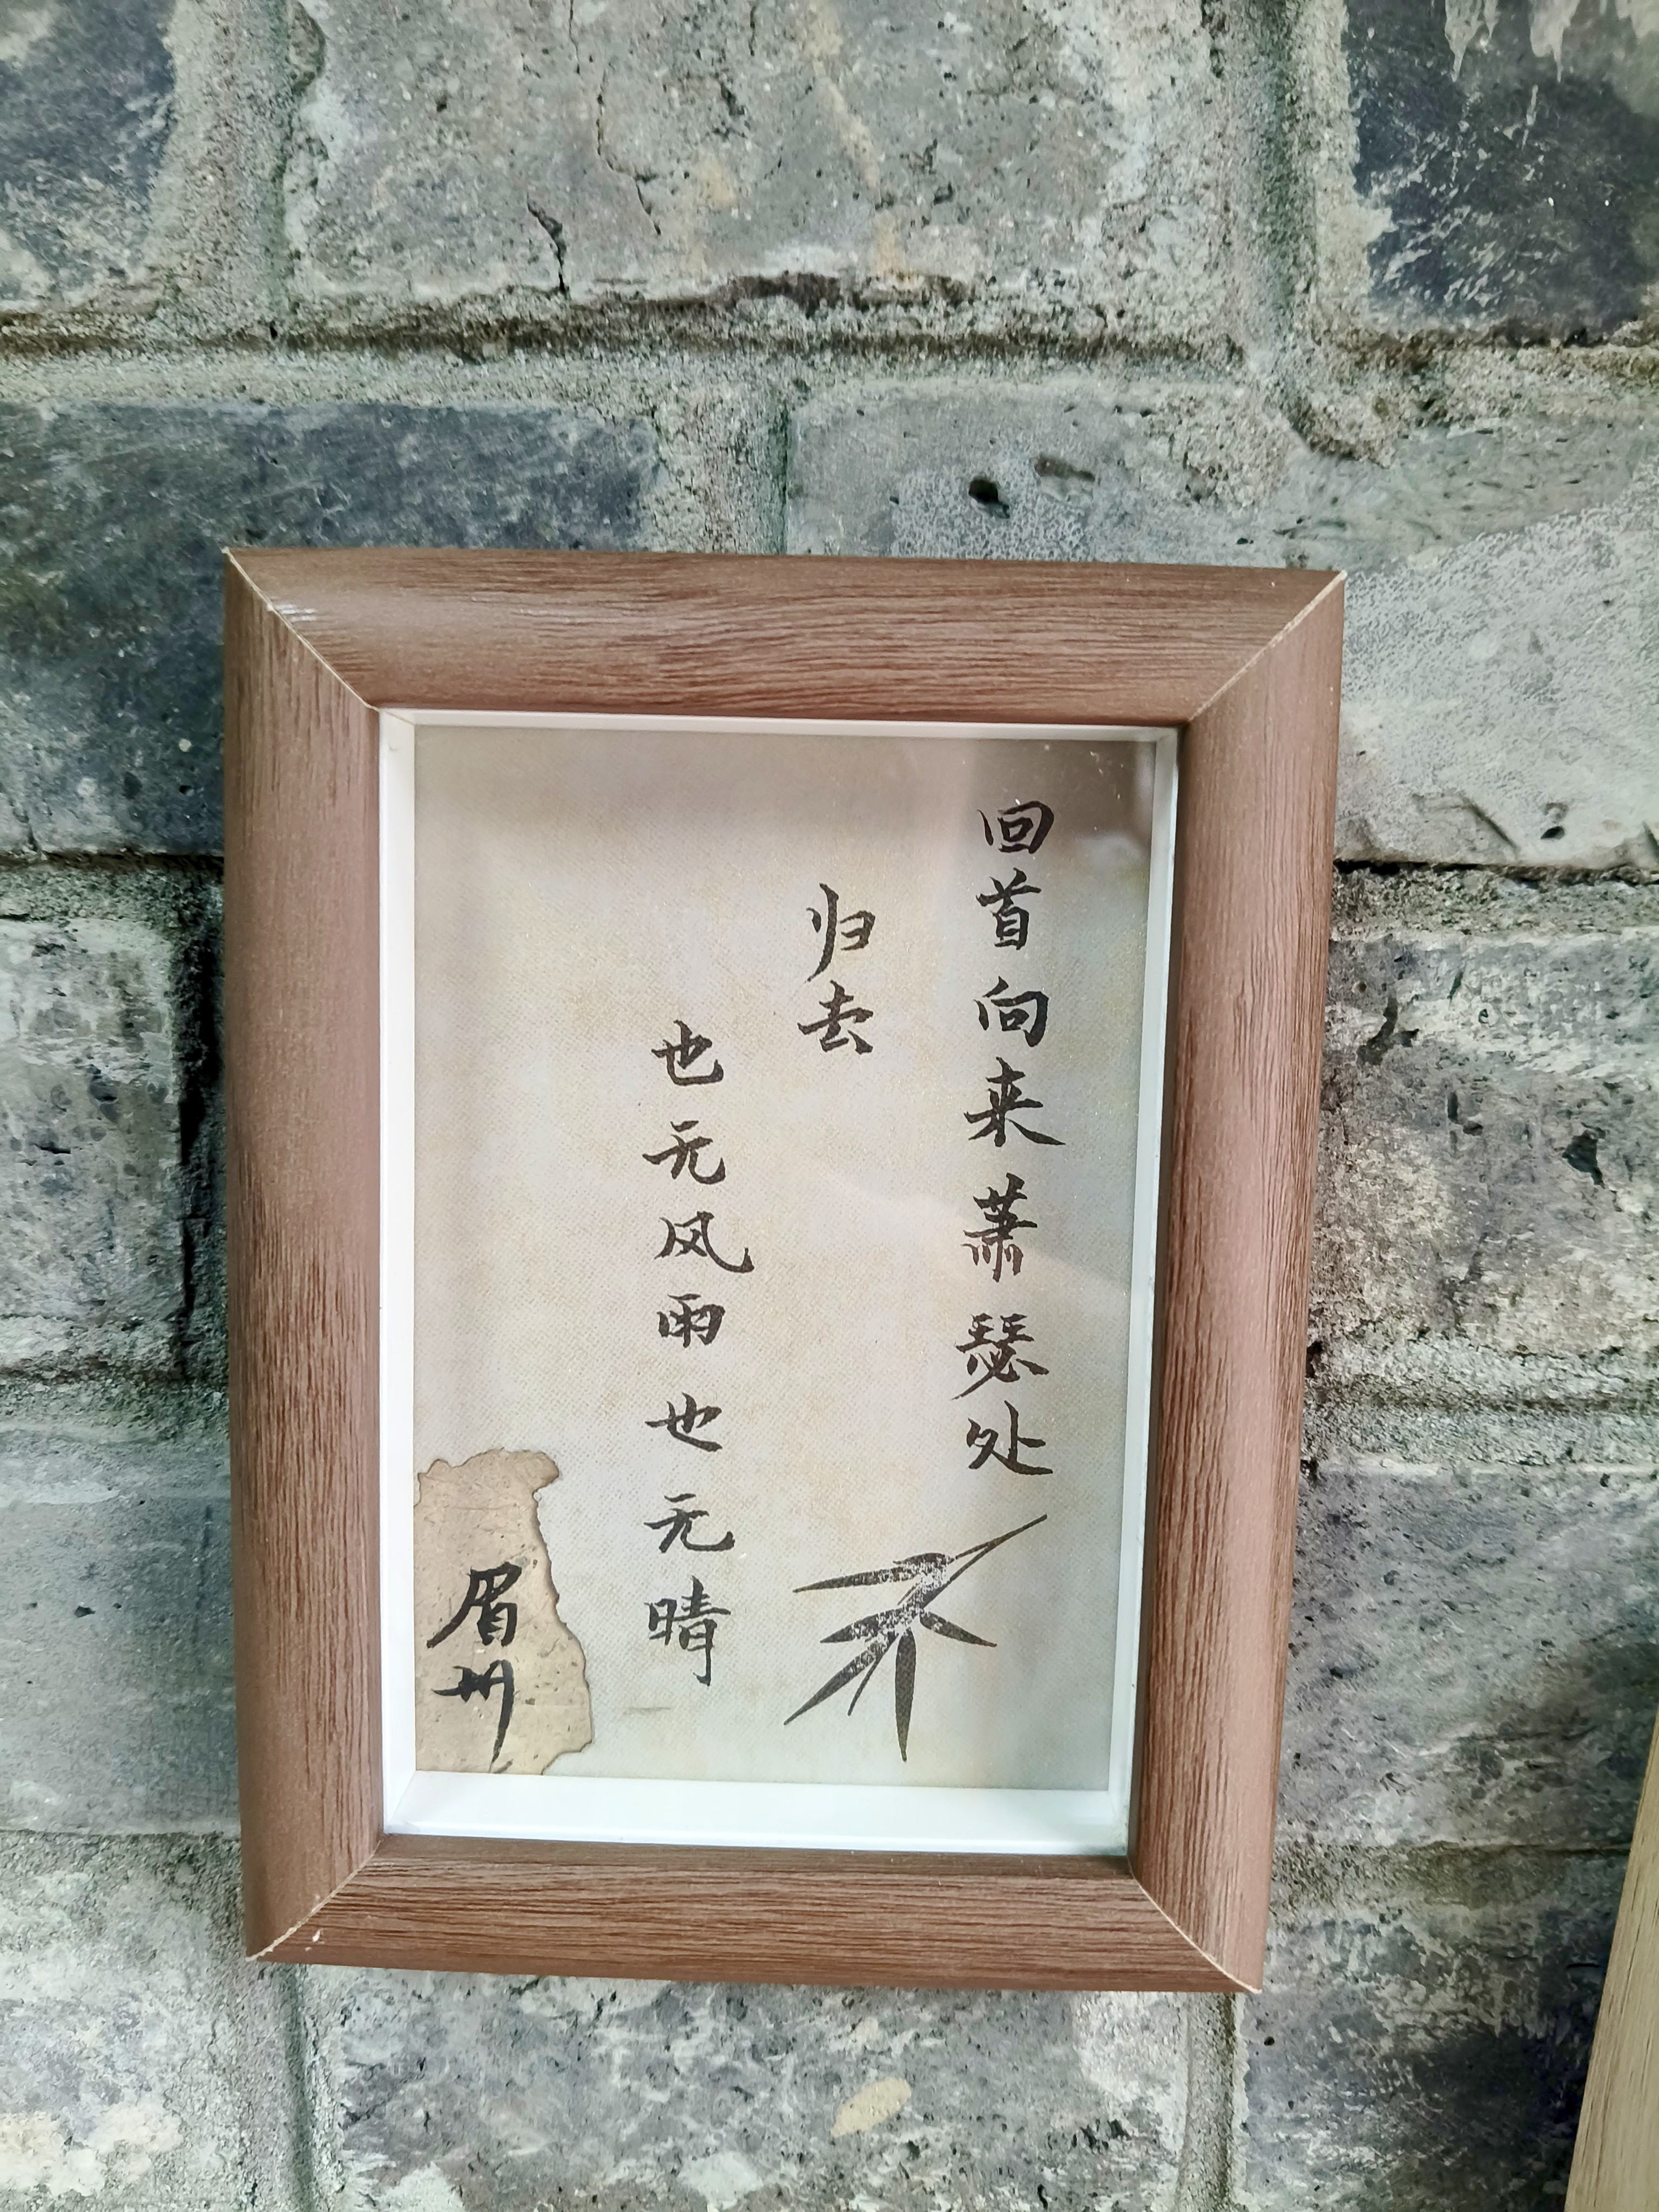 回首向来萧瑟处
归去
也无风雨也无晴
眉州